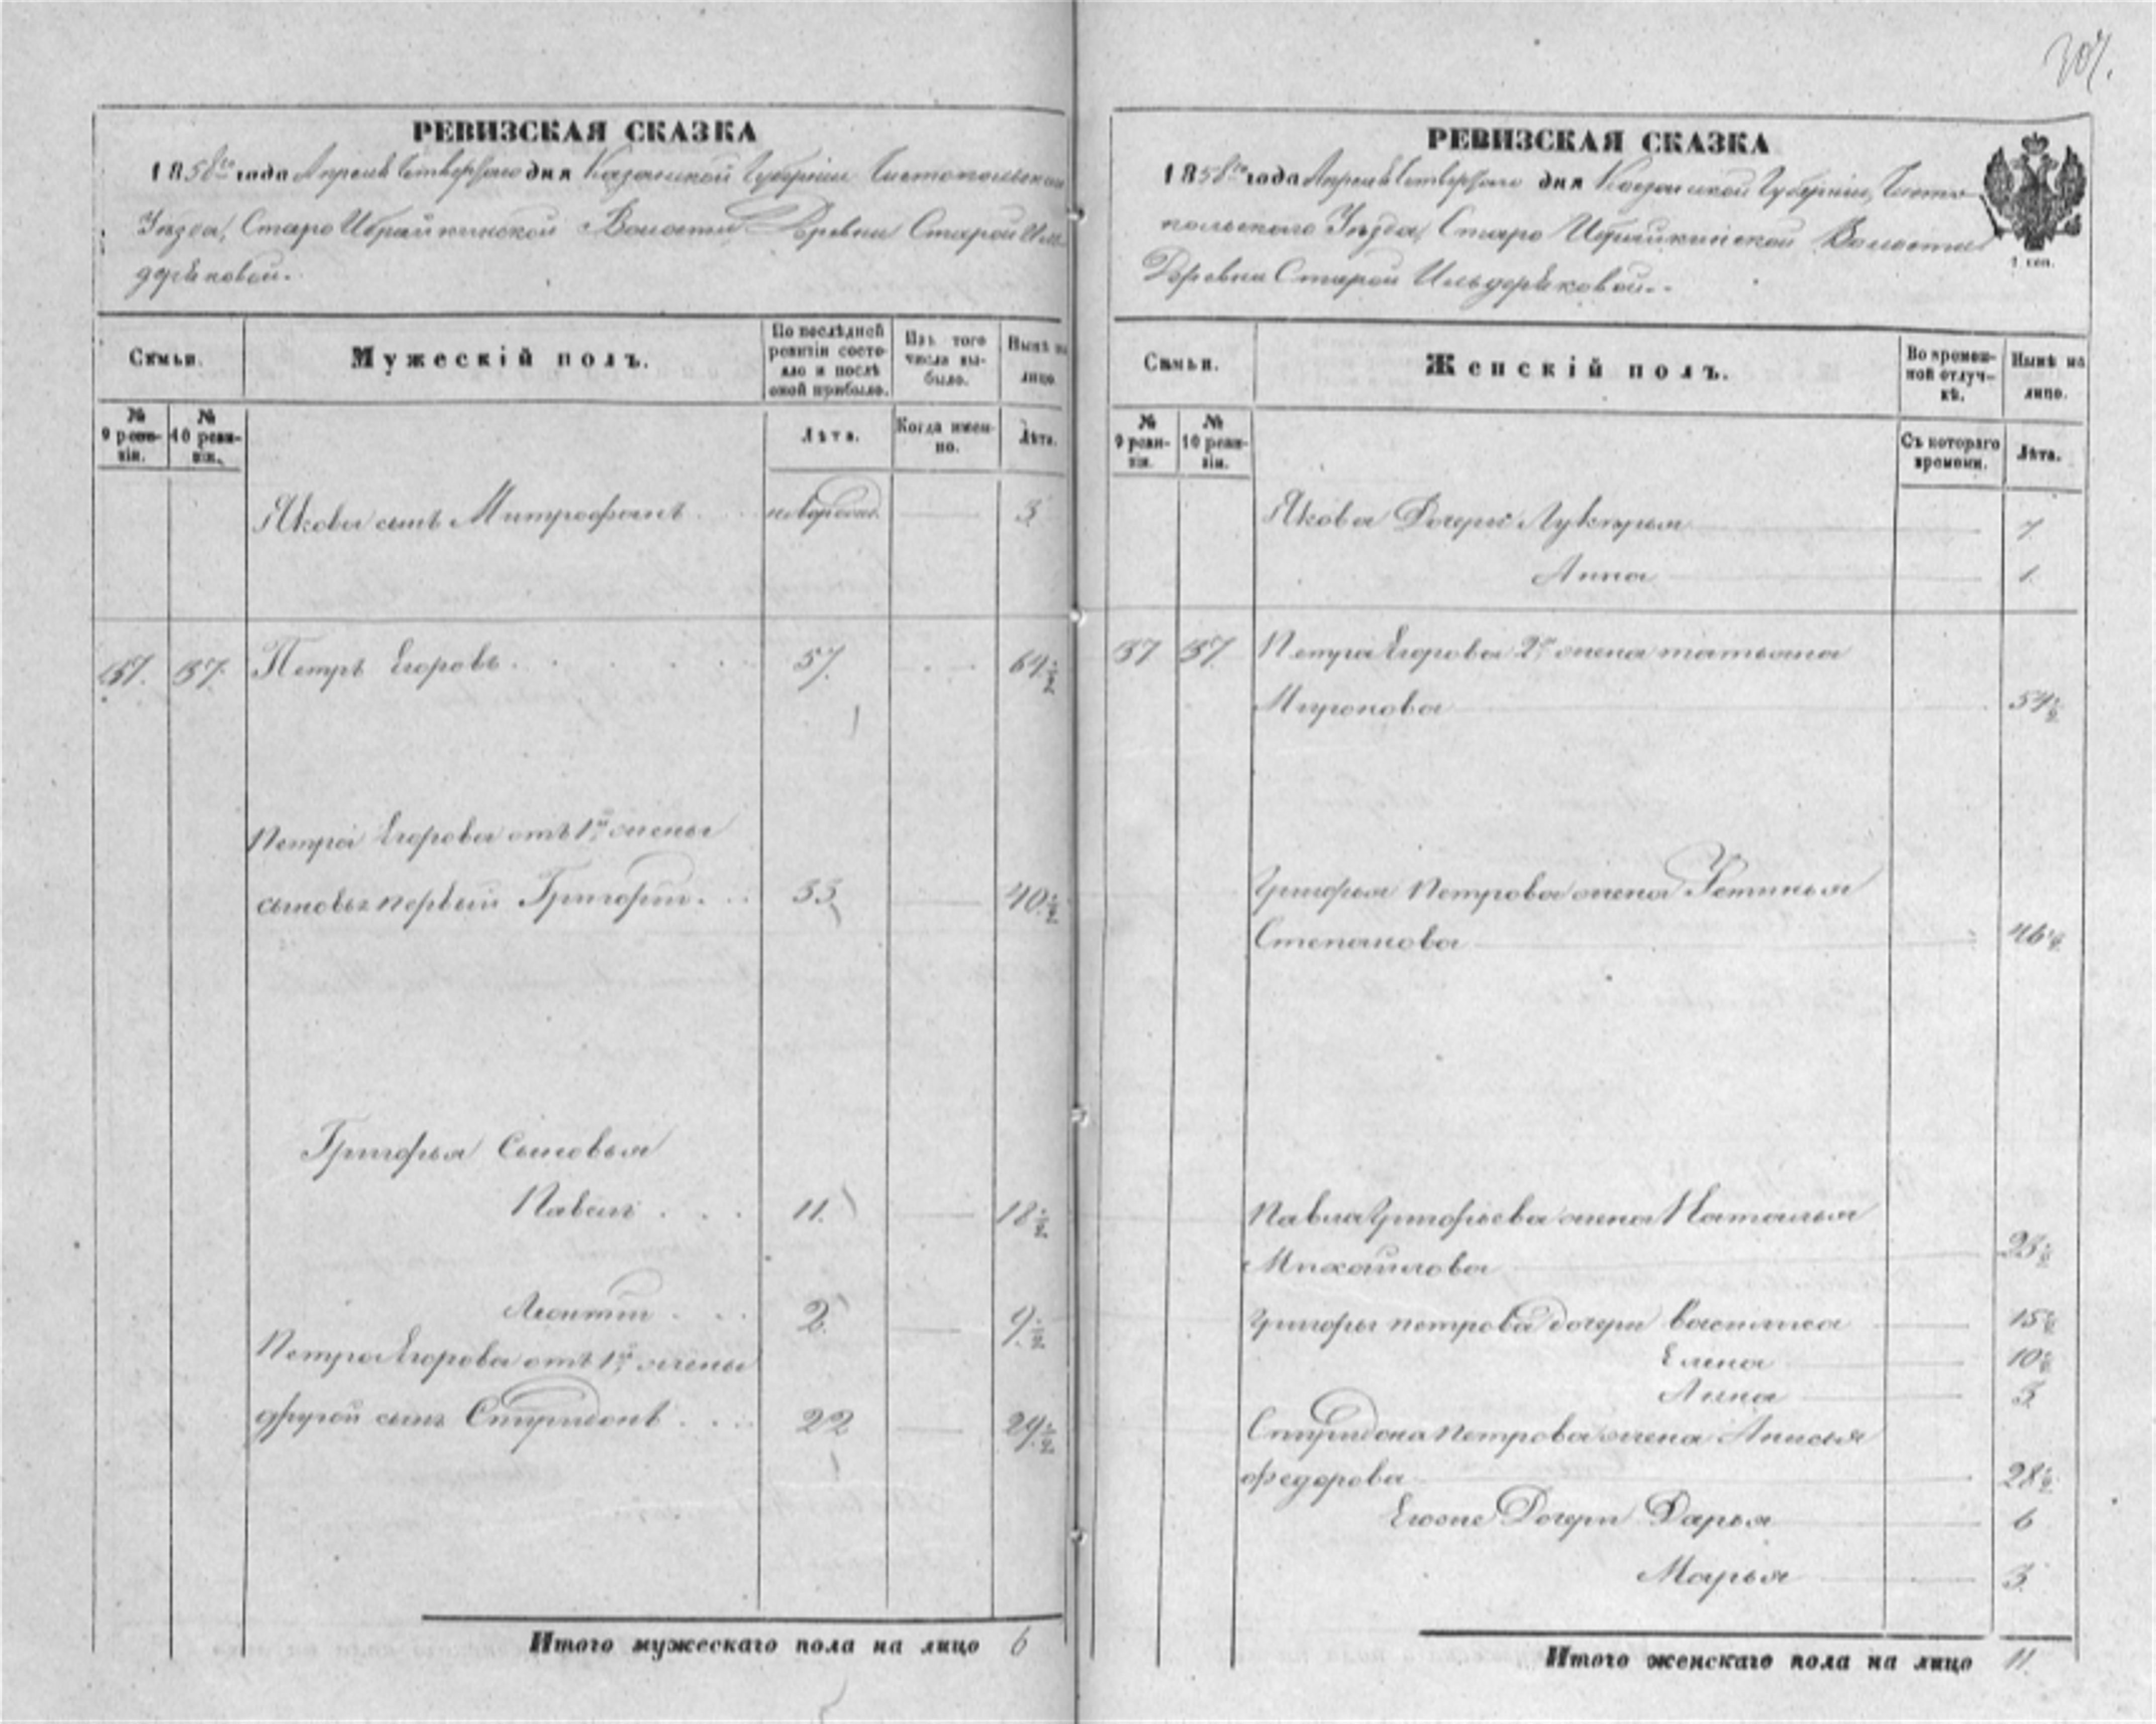 307.
РЕВИЗСКАЯ СКАЗКА
1858го года Апреля Четвертаго дня Казанской Губернии Чистопольскаго
Уезда, Старо Ибрайкинской Волости Деревни Старой Иль-
деряковой.
Семьи.
Мужескій полъ.
По послѣдней ревизіи состо-яло и послѣ оной прибыло.
Изъ того числа вы-было.
Нынѣ на лицо
№ 9 реви-зіи.
№ 10 реви-зіи.
Лѣта.
Когда имен-но.
Лѣта.
Якова сынъ Митрофанъ новорожд. 3
37. 37. Петръ Егоровъ 57. 64 1/2
Петра Егорова отъ 1й жены
сыновья первый Григорій 33 40 1/2
Григорья Сыновья
Павелъ 11. 18 1/2
Леонтій 2. 9 1/2
Петра Егорова отъ 1й жены
другой сынъ Спиридонъ 22 29 1/2
Итого мужескаго пола на лицо 6
РЕВИЗСКАЯ СКАЗКА
1858го года Апреля Четвертаго дня Казанской Губернии, Чисто-
польскаго Уезда, Старо Ибрайкинской Волости
Деревни Старой Ильдеряковой.
Семьи.
Женскій полъ.
Во времен-ной отлуч-кѣ.
Нынѣ на лицо.
№ 9 реви-зіи.
№ 10 реви-зіи.
Съ котораго времени.
Лѣта.
Якова Дочери Лукерья 7
Анна 1
37 37 Петра Егорова 2я жена татьяна
Миронова 54
Григорья Петрова жена Фетинья
Степанова 46
Павла Григорьева жена Наталья
Михайлова 25
Григорья петрова дочери василиса 15
Елена 10
Анна 3
Спиридона Петрова жена Анисья
федорова 28
Егоже Дочери Дарья 6
Марья 3
Итого женскаго пола на лицо 11